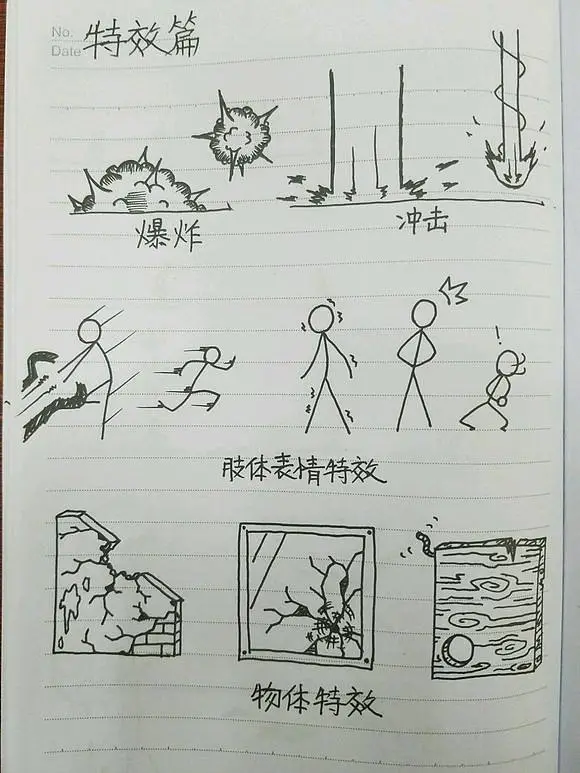 No.
Date
特效篇
爆炸
冲击
!
肢体表情特效
物体特效